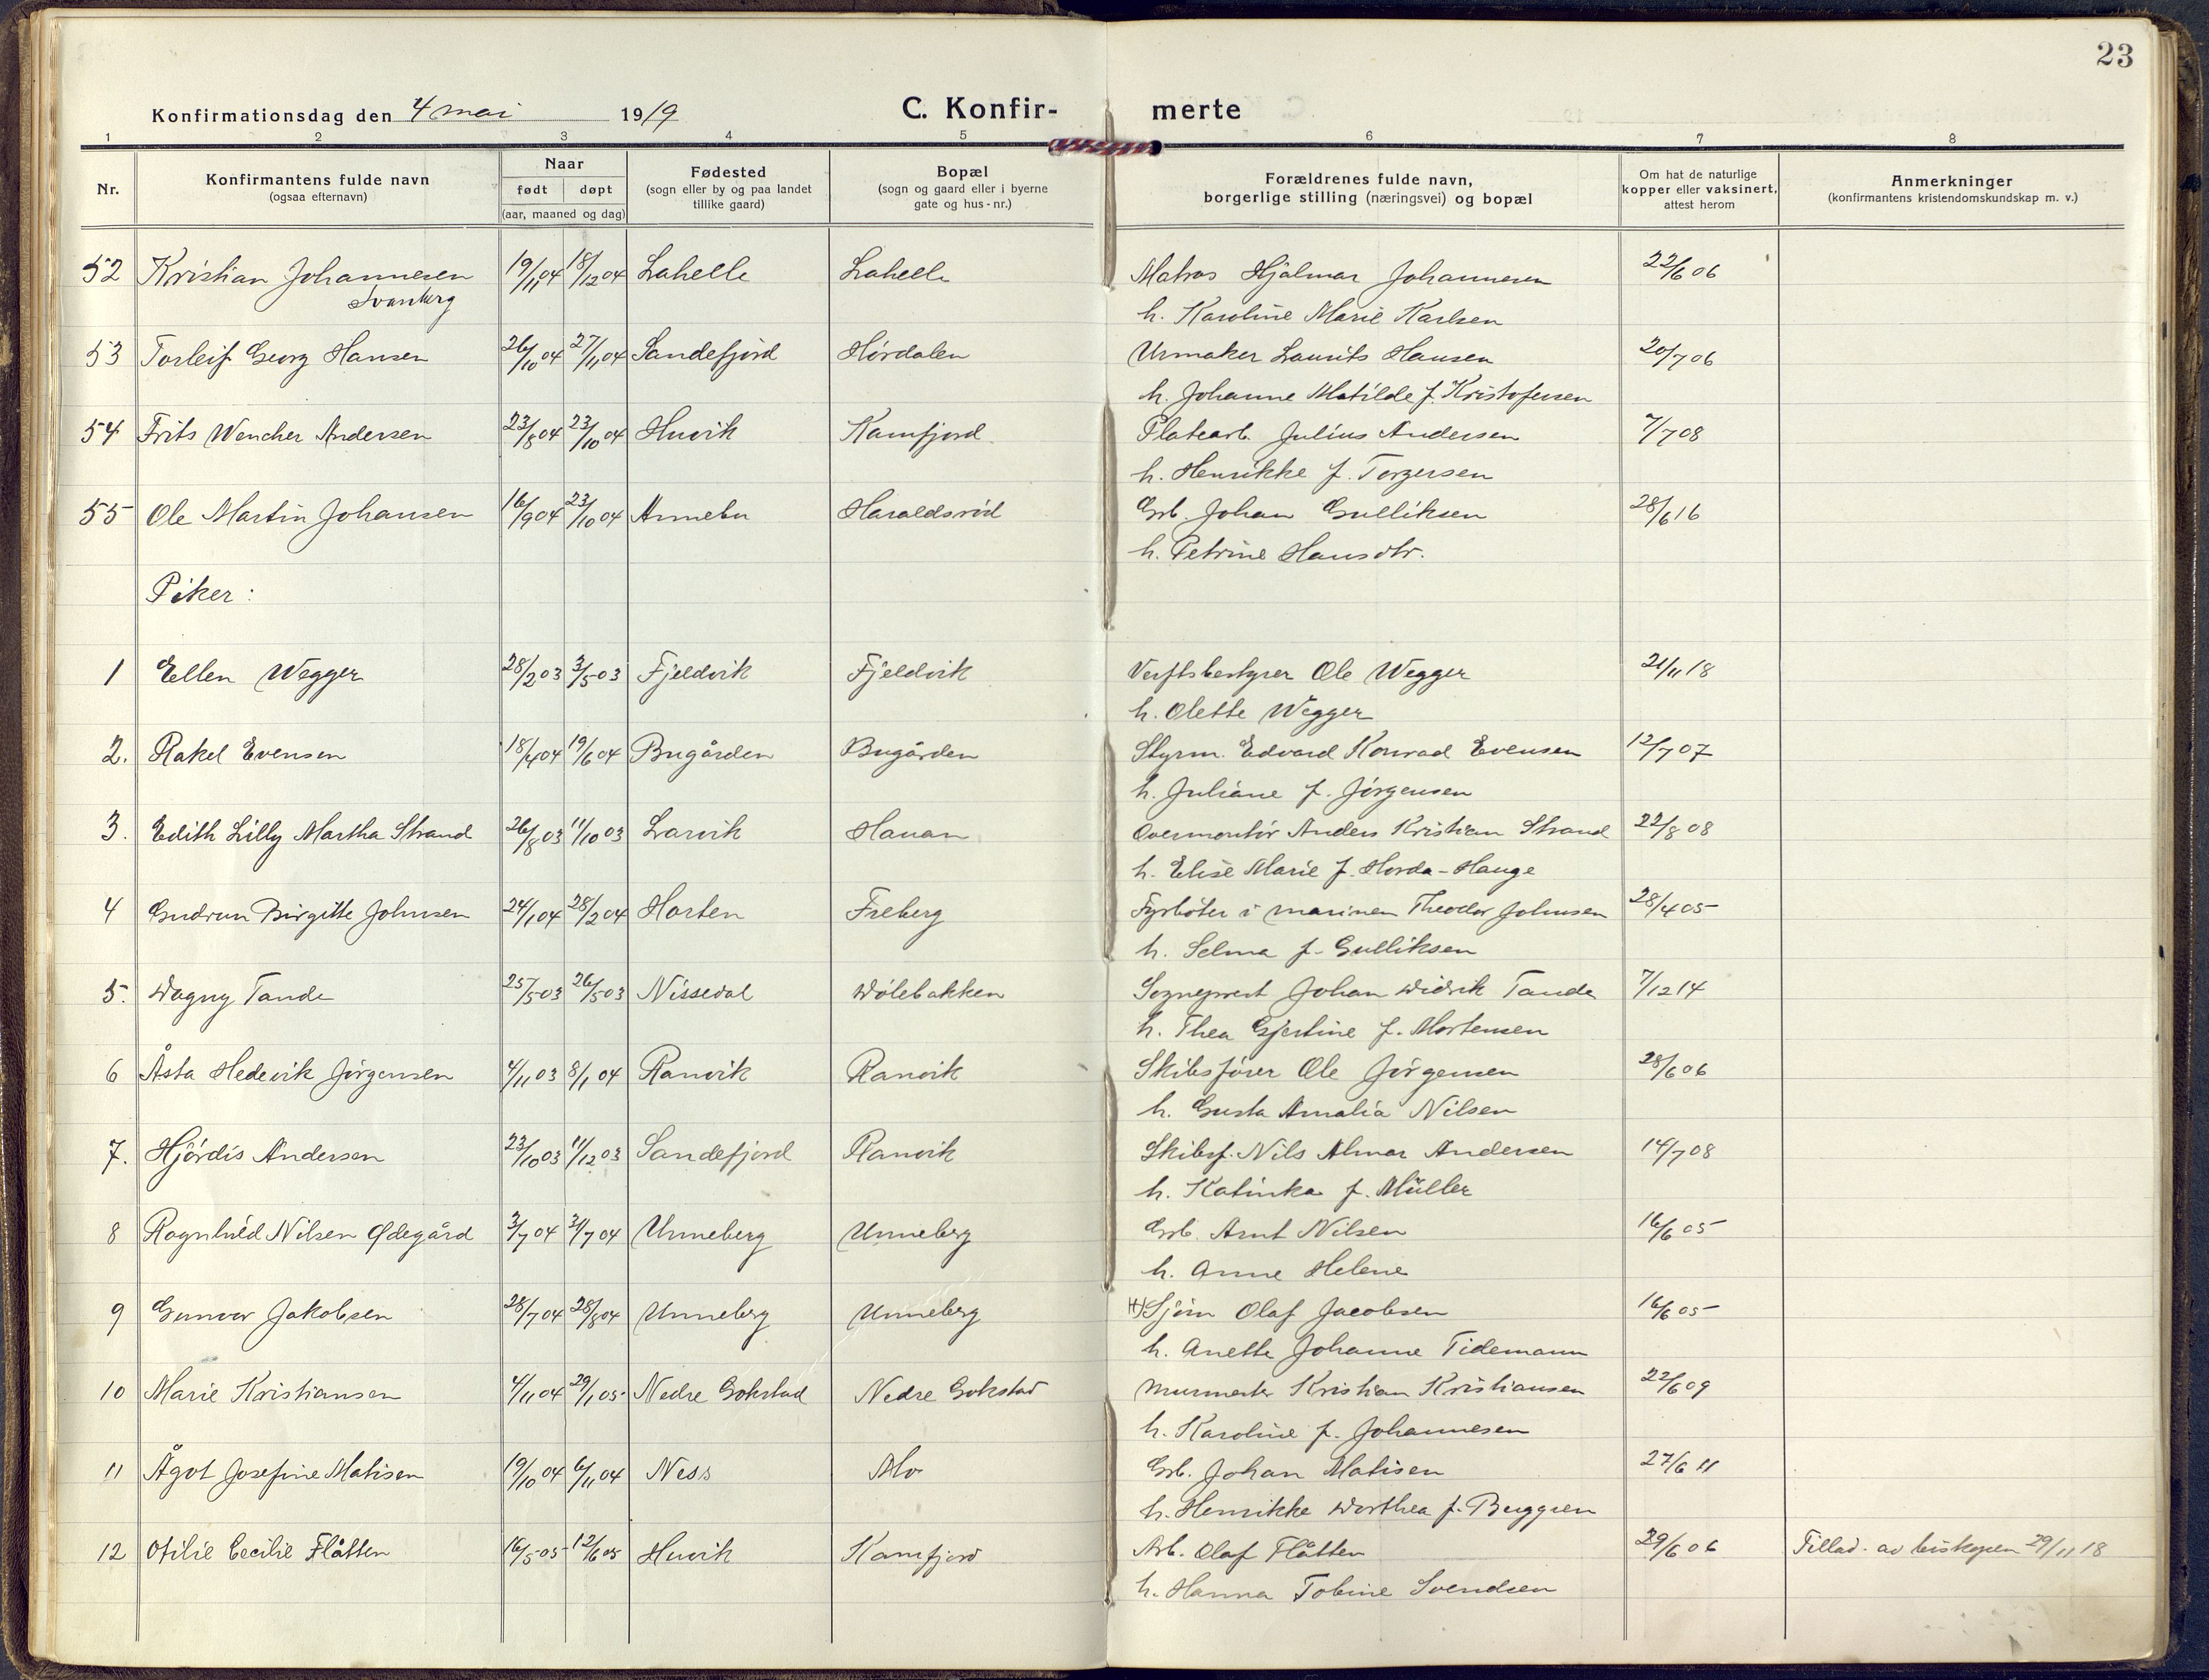 23
Konfirmationsdag den 4 mai 1919 C. Konfir- merte
1 2 3 4 5 6 7 8
Nr. Konfirmantens fulde navn (ogsaa efternavn) Naar født døpt (aar, maaned og dag) Fødested (sogn eller by og paa landet tillike gaard) Bopæl (sogn og gaard eller i byerne gate og hus-nr.) Forældrenes fulde navn, borgerlige stilling (næringsvei) og bopæl Om hat de naturlige kopper eller vaksinert, attest herom Anmerkninger (konfirmantens kristendomskundskap m. v.)
52 Kristian Johannesen 19/11 04 18/12 04 Lahelle Lahelle Matros Hjalmar Johannesen 22/6 06
Svanberg h. Karoline Marie Karlsen
53 Torleif Georg Hansen 26/10 04 27/11 04 Sandefjord Hørdalen Urmaker Laurits Hansen 20/7 06
h. Johanne Matilde f. Kristofersen
54 Frits Wencher Andersen 23/8 04 23/10 04 Huvik Kamfjord Platearb. Julius Andersen 7/7 08
h. Henrikke f. Torgersen
55 Ole Martin Johansen 16/9 04 23/10 04 Arnebu Haraldsrød Grb. Johan Gulliksen 28/6 16
h. Petrine Hansdtr.
Piker:
1 Ellen Wegger 28/2 03 3/5 03 Fjeldvik Fjeldvik Verftsbestyrer Ole Wegger 21/11 18
h. Olette Wegger
2. Rakel Evensen 18/4 04 19/6 04 Bugården Bugården Styrm. Edvard Konrad Evensen 12/7 07
h. Juliane f. Jørgensen
3. Edith Lilly Martha Strand 26/8 03 11/10 03 Larvik Hauan Overmontør Anders Kristian Strand 22/8 08
h. Elise Marie f. Horda-Hauge
4 Gudrun Birgitte Johnsen 24/1 04 28/2 04 Horten Freberg Fyrbøter i marinen Theodor Johnsen 28/4 05
h. Selma f. Gulliksen
5. Dagny Tande 25/5 03 26/5 03 Nissedal Dølebakken Sogneprest Johan Didrik Tande 7/12 14
h. Thea Gjertine f. Mortensen
6 Åsta Hedevik Jørgensen 4/11 03 8/1 04 Ranvik Ranvik Skibsfører Ole Jørgensen 28/6 06
h. Gusta Amalia Nilsen
7. Hjørdis Andersen 23/10 03 11/12 03 Sandefjord Ranvik Skibsf. Nils Almar Andersen 14/7 08
h. Katinka f. Müller
8 Ragnhild Nilsen Ødegård 3/7 04 31/7 04 Unneberg Unneberg Grb. Arnt Nilsen 16/6 05
h. Anne Helene
9 Gunvor Jakobsen 28/7 04 28/8 04 Unneberg Unneberg Sjøm Olaf Jacobsen 16/6 05
h. Anette Johanne Tidemann
10 Marie Kristiansen 4/11 04 29/1 05 Nedre Gokstad Nedre Gokstad Murmester Kristian Kristiansen 22/6 09
h. Karoline f. Johannesen
11 Ågot Josefine Matisen 19/10 04 6/11 04 Ness Mo Grb. Johan Matisen 27/6 11
h. Henrikke Dorthea f. Berggren
12 Otilie Cecilie Flåtten 16/5 05 12/6 05 Huvik Kamfjord Arb. Olaf Flåtten 29/6 06 Tillad. av biskopen 29/11 18
h. Hanna Tobine Svendsen